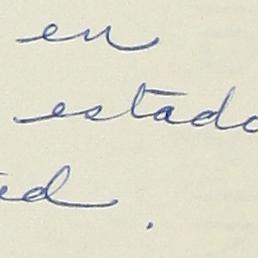 en
estado
ed.